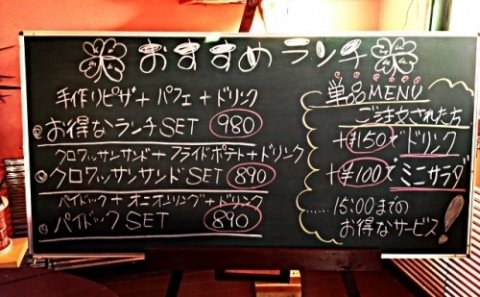 おすすめランチ
手作りピザ+パフェ+ドリンク
お得なランチSET 980
クロワッサンサンド+フライドポテト+ドリンク
クロワッサンサンドSET 890
パイドック+オニオンリング+ドリンク
パイドックSET 890
単品MENU
ご注文された方
+¥150でドリンク
+¥100でミニサラダ
15:00までの
お得なサービス!